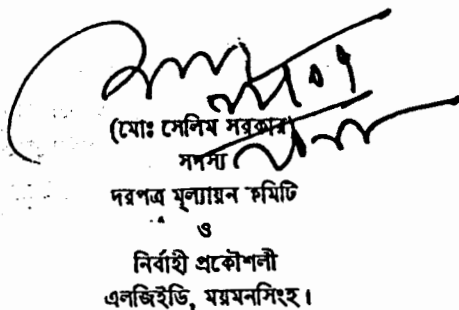 (মোঃ সেলিম সরকার)
সদস্য
দরপত্র মূল্যায়ন কমিটি
ও
নির্বাহী প্রকৌশলী
এলজিইডি, ময়মনসিংহ।